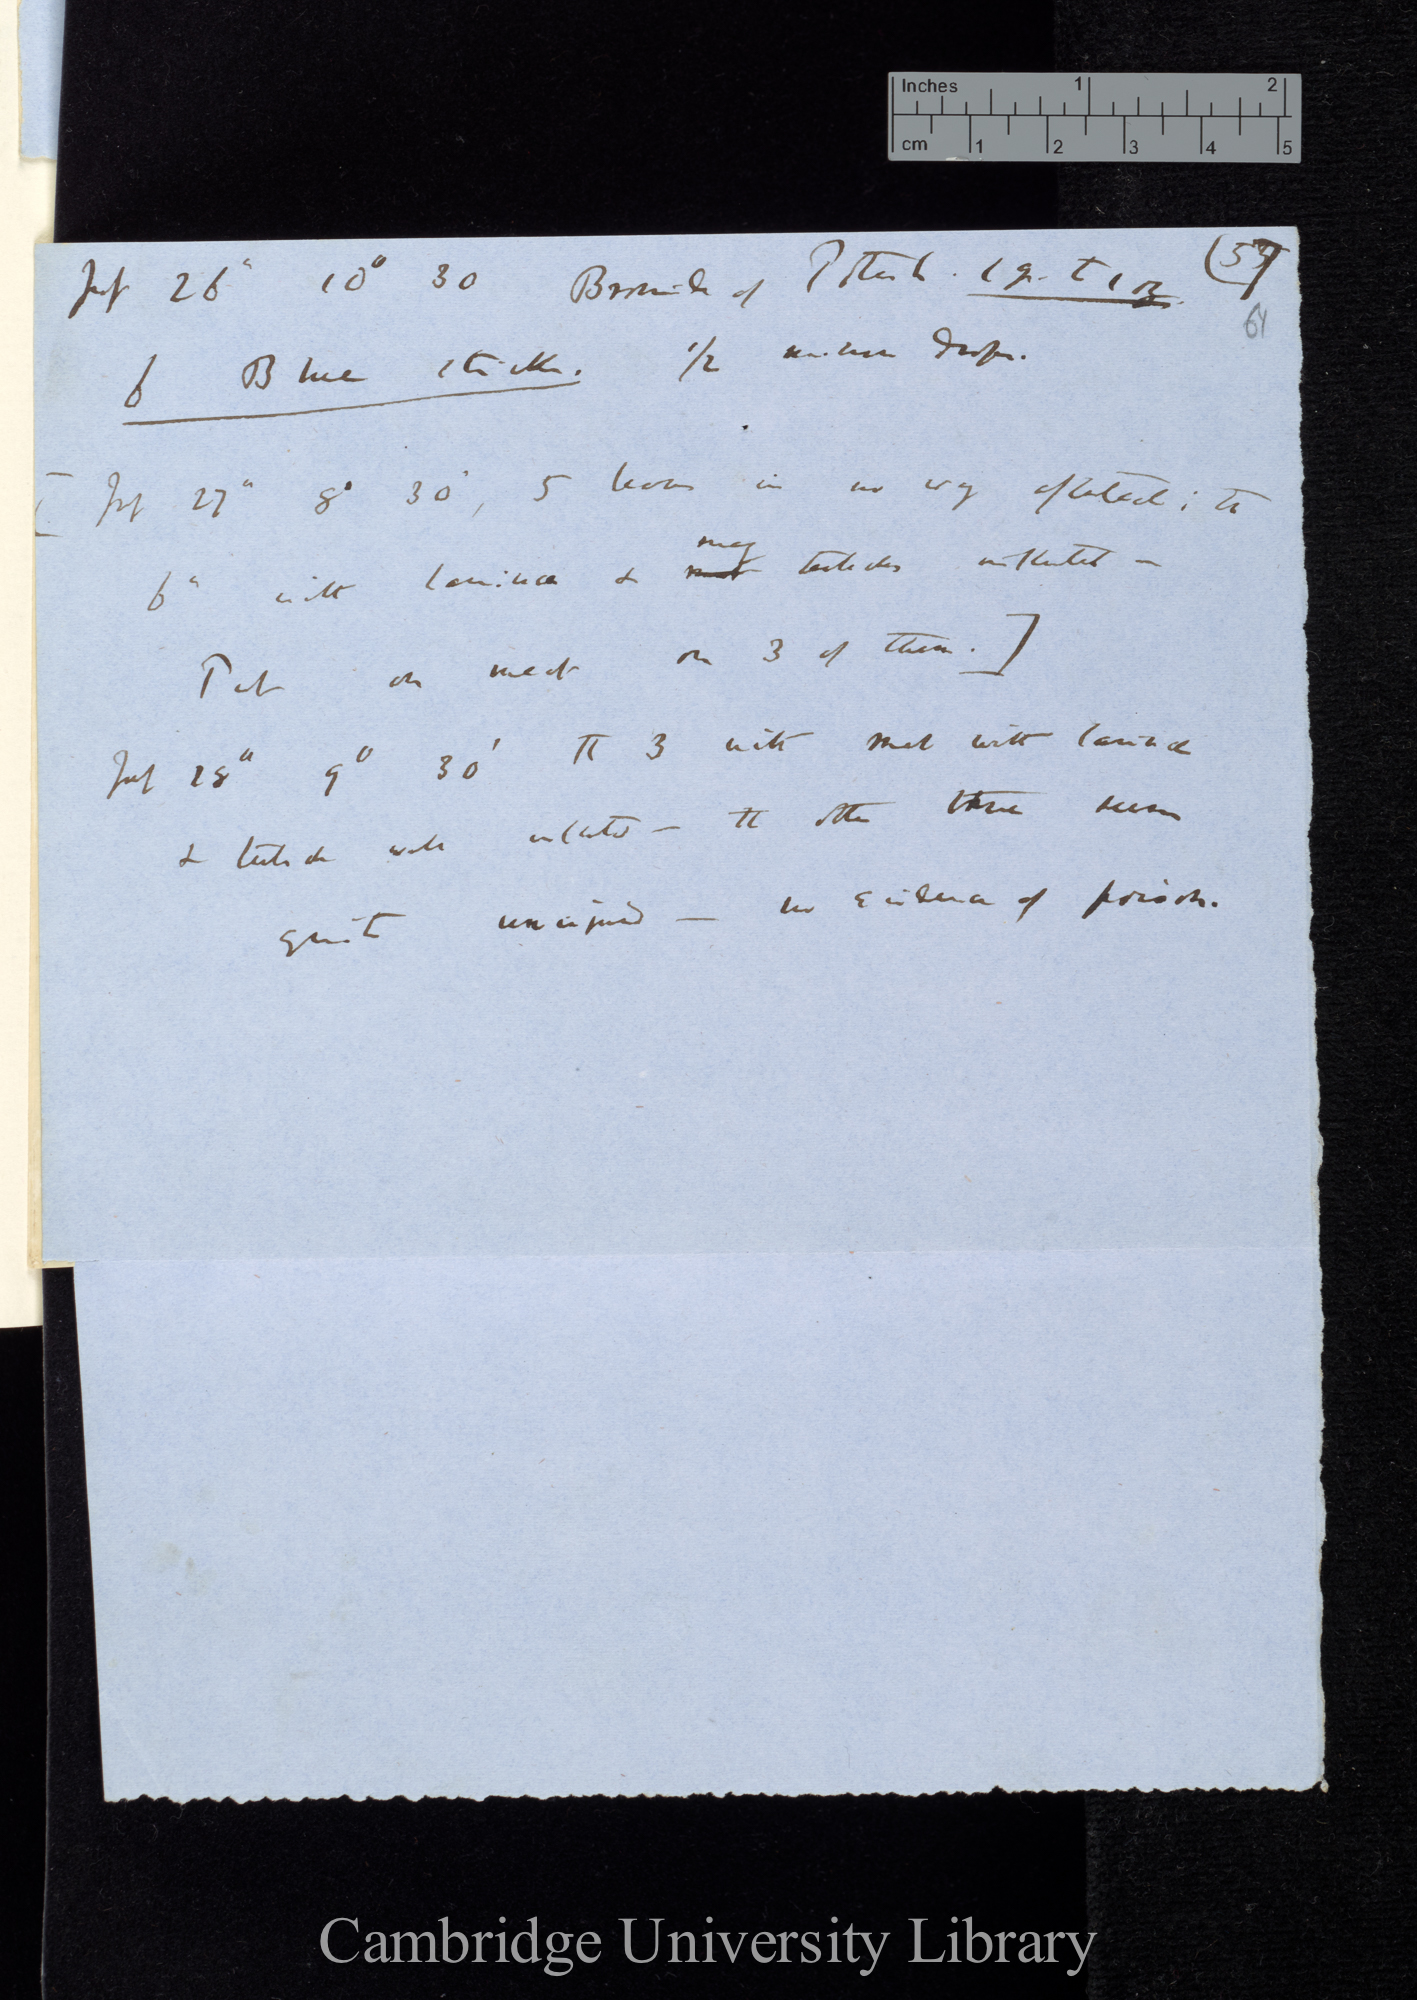 Inches 1 2
cm 1 2 3 4 5
July 26th 10° 30 Bromide of Potash. 1 gr. to 1 oz (57)
64
6 Blue sticks. 1/2 minim drops.
[July 27th 8° 30', 5 leaves in no way affected; the
6th with lamina & many tentacles inflected —
Put on meat on 3 of them.]
July 28th 9° 30' The 3 with meat with lamina
& tentacles well inflected — the other three seem
quite uninjured — no evidence of poison.
Cambridge University Library